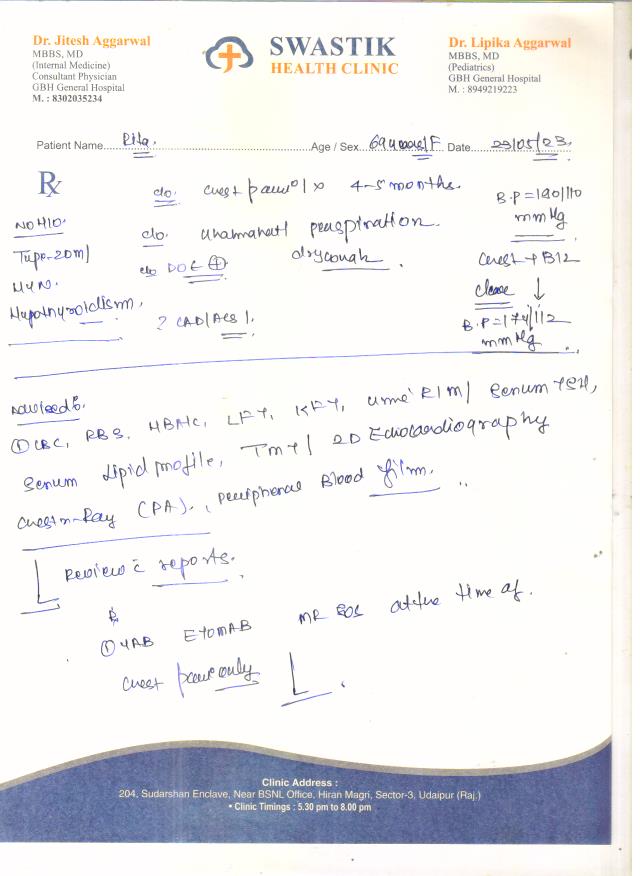 Dr. Jitesh Aggarwal
MBBS, MD
(Internal Medicine)
Consultant Physician
GBH General Hospital
M. : 8302035234
SWASTIK
HEALTH CLINIC
Dr. Lipika Aggarwal
MBBS, MD
(Pediatrics)
GBH General Hospital
M. : 8949219223
Patient Name Rita. Age / Sex /F Date 23/05/23.
Rx
c/o. chest pain x 4-5 months.
c/o. perspiration
dry cough.
c/o DOE ⊕
? CAD/ACS
NO H/O.
Type-2 DM/
HTN.
Hypothyroidism.
B.P=190/110
mmHg
Chest → B/L
clear ↓
B.P=174/112
mmHg
Advised
① CBC, RBS, HBA1C, LFT, KFT, urine R/M/ Serum TSH,
Serum Lipid profile, TMT/ 2D Echocardiography
Chest x-Ray (PA)., peripheral Blood film.
Review c̄ reports.
R
① TAB ETOMAB MR SOS at the time of.
chest pain only
Clinic Address :
204, Sudarshan Enclave, Near BSNL Office, Hiran Magri, Sector-3, Udaipur (Raj.)
• Clinic Timings : 5.30 pm to 8.00 pm